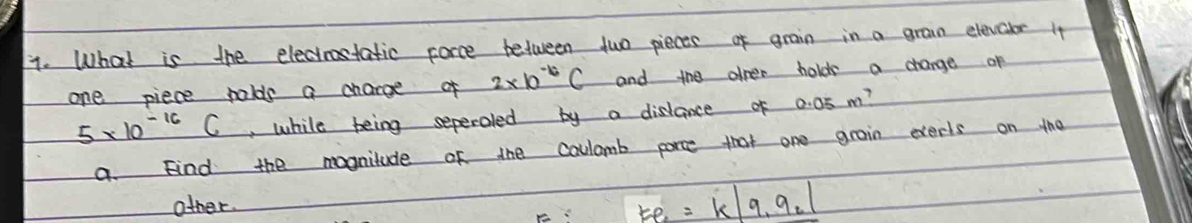 7. What is the electrostatic force between two pieces of grain in a grain elevator if
one piece holds a charge of 2×10⁻¹⁶ C and the other holds a charge of
5×10⁻¹⁶ C, while being seperated by a distance of 0.05 m?
a. Find the magnitude of the Coulomb force that one grain exerts on the
other.
F: Fe = k|q₁q₂|